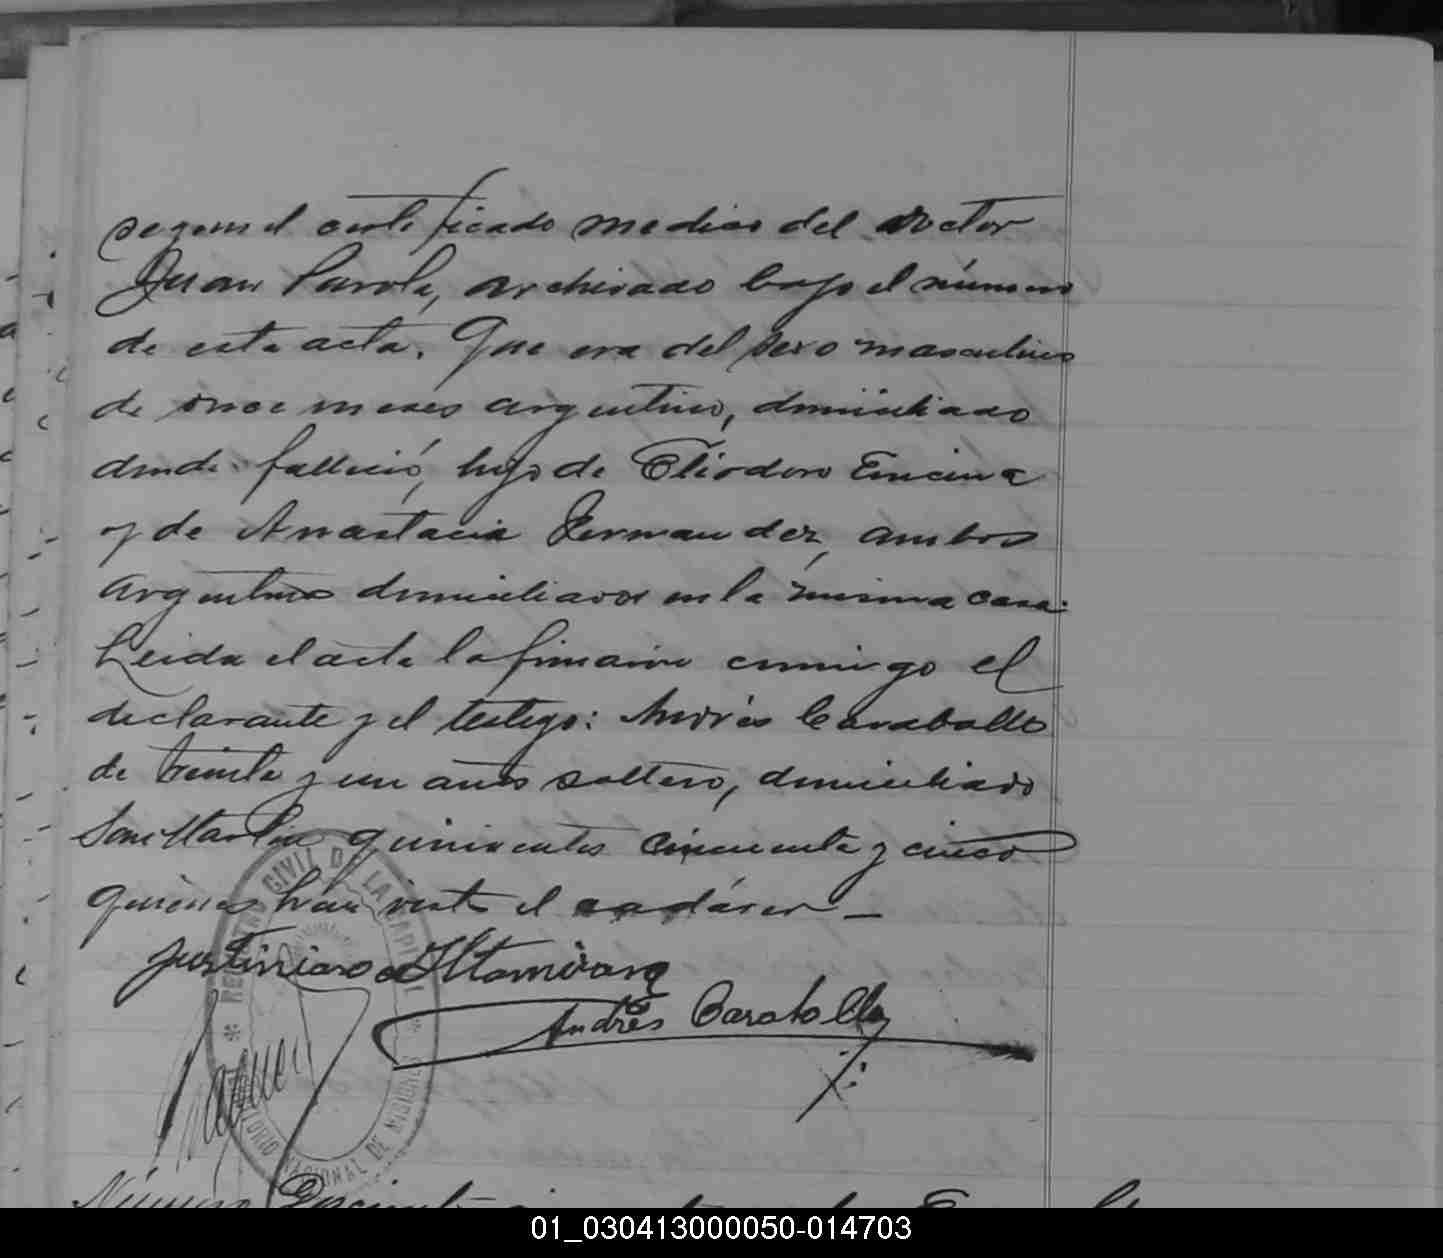 segun el certificado medico del doctor
Juan Parola, archivado bajo el número
de esta acta. Que era del sexo masculino
de once meses argentino, domiciliado
donde falleció, hijo de Eliodoro Encina
y de Anastacia Fernandez, ambos
argentinos domiciliados en la misma casa.
Leida el acta la firmaron conmigo el
declarante y el testigo: Andrés Caraballo
de treinta y un años soltero, domiciliado
San Martin quinientos cincuenta y cinco
quienes han visto el cadáver—
Justiniano Altamirano
Andrés Caraballo
REGISTRO CIVIL DE LA CAPITAL
TERRITORIO NACIONAL DE MISIONES
Número
01_030413000050-014703